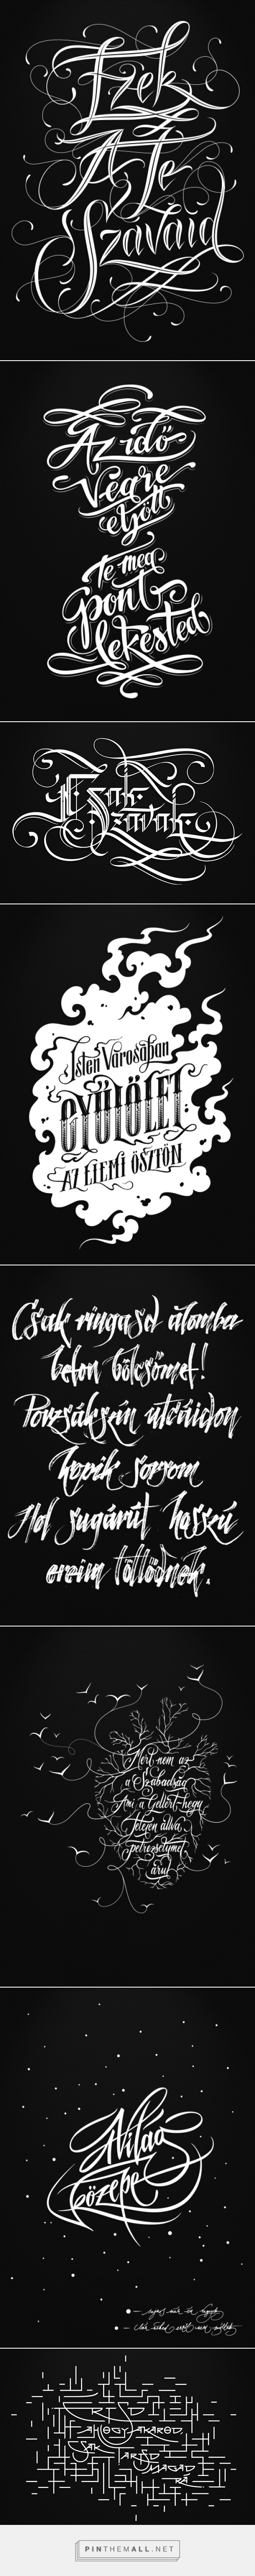 Ezek
A Te
Szavaid
Az idő
végre
eljött
Te meg
pont
lekésted
Csak
szavak
Isten Városában
GYŰLÖLET
AZ ELEMI ÖSZTÖN
Csak ringasd álomba
beton bölcsőmet!
Porzsákszín utcáidon
kopik sorsom
Hol sugárút hosszú
ereim töltődnek.
Mert nem az
a Szabadság
Ami a Gellért-hegy
Tetején állva
petrezselymet
árul
A világ
közepe
ÉRTSD
AHOGY AKAROD,
CSAK TARTSD
MAGAD
RÁ
PINTHEMALL.NET